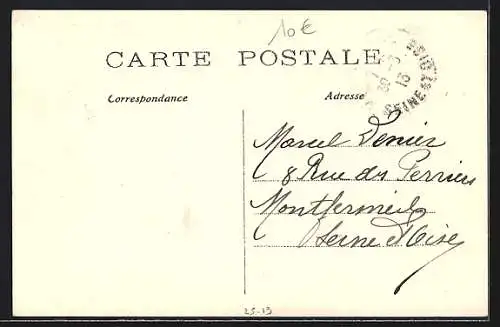 10€
CARTE POSTALE
Correspondance
Adresse
30 - 3
13
Marcel Denier
8 Rue des Perriers
Montfermeil
Seine et Oise
25-13